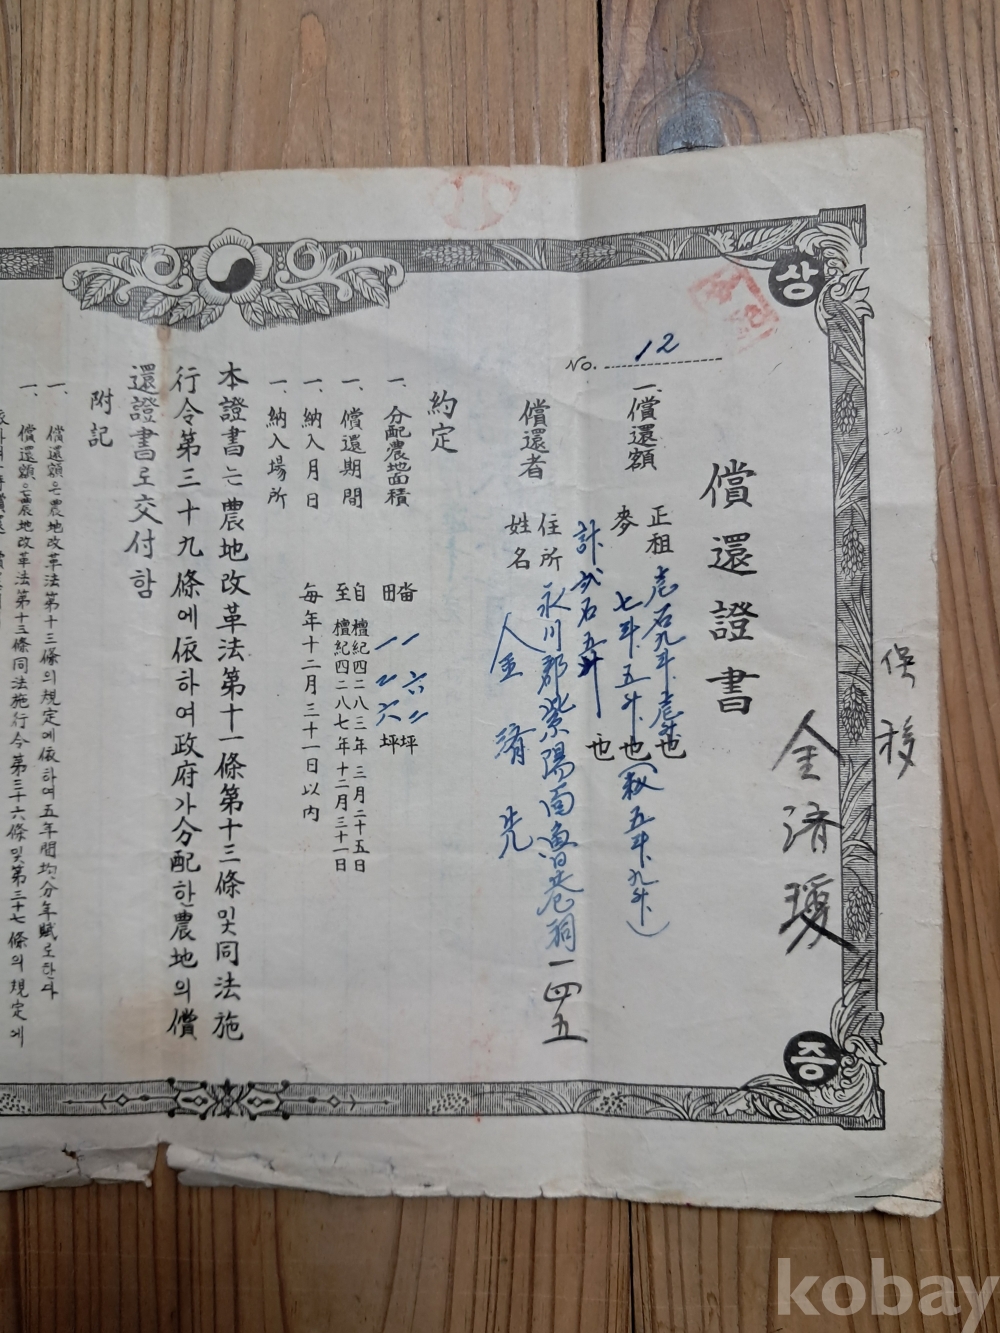 상
증
No. 12
償還證書
一、償還額
正租 壱石九斗 也
麥 七斗五升 也(粎五斗九升)
計 貳石五斗 也
償還者
住所 永川郡紫陽面魯巷洞一四五
姓名 金濟
約定
一、分配農地面積
畓 一六二坪
田 一二六坪
一、償還期間
自 檀紀四二八三年 三月二十五日
至 檀紀四二八七年十二月三十一日
一、納入月日 每年十二月三十一日以內
一、納入場所
本證書는 農地改革法第十一條第十三條 및 同法施
行令第三十九條에依하여政府가分配한農地의償
還證書로交付함
附記
一、償還額은農地改革法第十三條의規定에依하여五年間均分年賦로한다
一、償還額은農地改革法第十三條同法施行令第三十六條및第三十七條의規定에
金濟
kobay